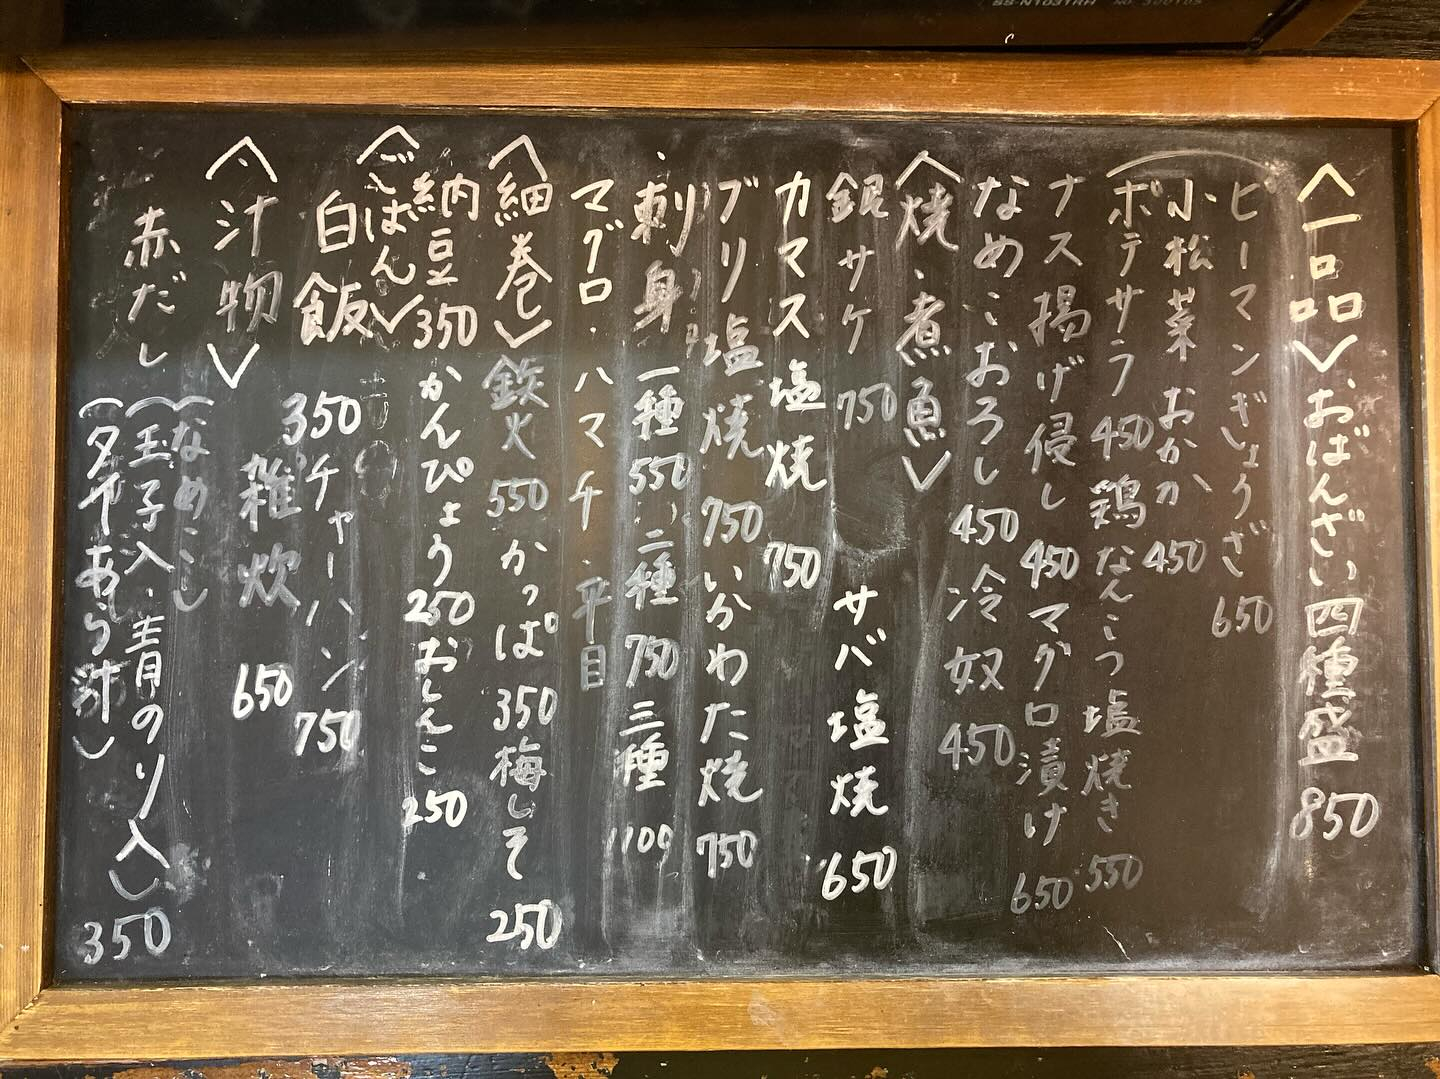 SS-N1031RH NO. 300105
〈一品〉おばんざい四種盛 850
ピーマンぎょうざ 650
小松菜 おかか 450
ポテサラ 450 鶏なんこつ塩焼き 550
ナス揚げ侵し 450 マグロ漬け 650
なめこおろし 450 冷奴 450
〈焼・煮魚〉
銀サケ 750 サバ塩焼 650
カマス塩焼 750
ブリ塩焼 750 いかわた焼 750
刺身 一種 550 二種 750 三種 1100
マグロ・ハマチ・平目
〈細巻〉鉄火 550 かっぱ 350 梅しそ 250
納豆 350 かんぴょう 250 おしんこ 250
〈ごはん〉
白飯 350 チャーハン 750
雑炊 650
〈汁物〉
赤だし (なめこ
(玉子入・青のり入) 350
あら汁)